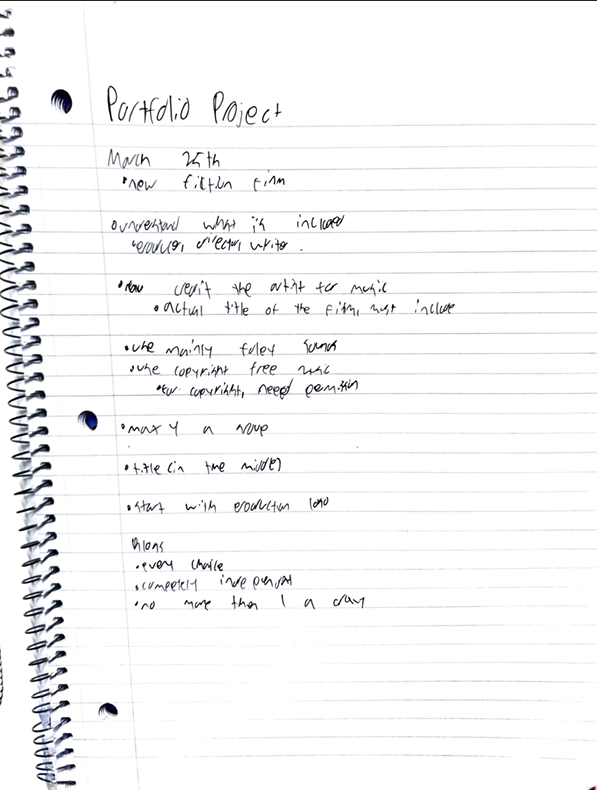 Portfolio Project
March 25th
• new fiction film
• understand what is included
producer, director, writer.
• credit the artist for music
• actual title of the film, must include
• use mainly foley sounds
• use copyright free music
• for copyright, need permission
• max 4 a group
• title (in the middle)
• start with production logo
Blogs
• every choice
• completely independent
• no more than 1 a day